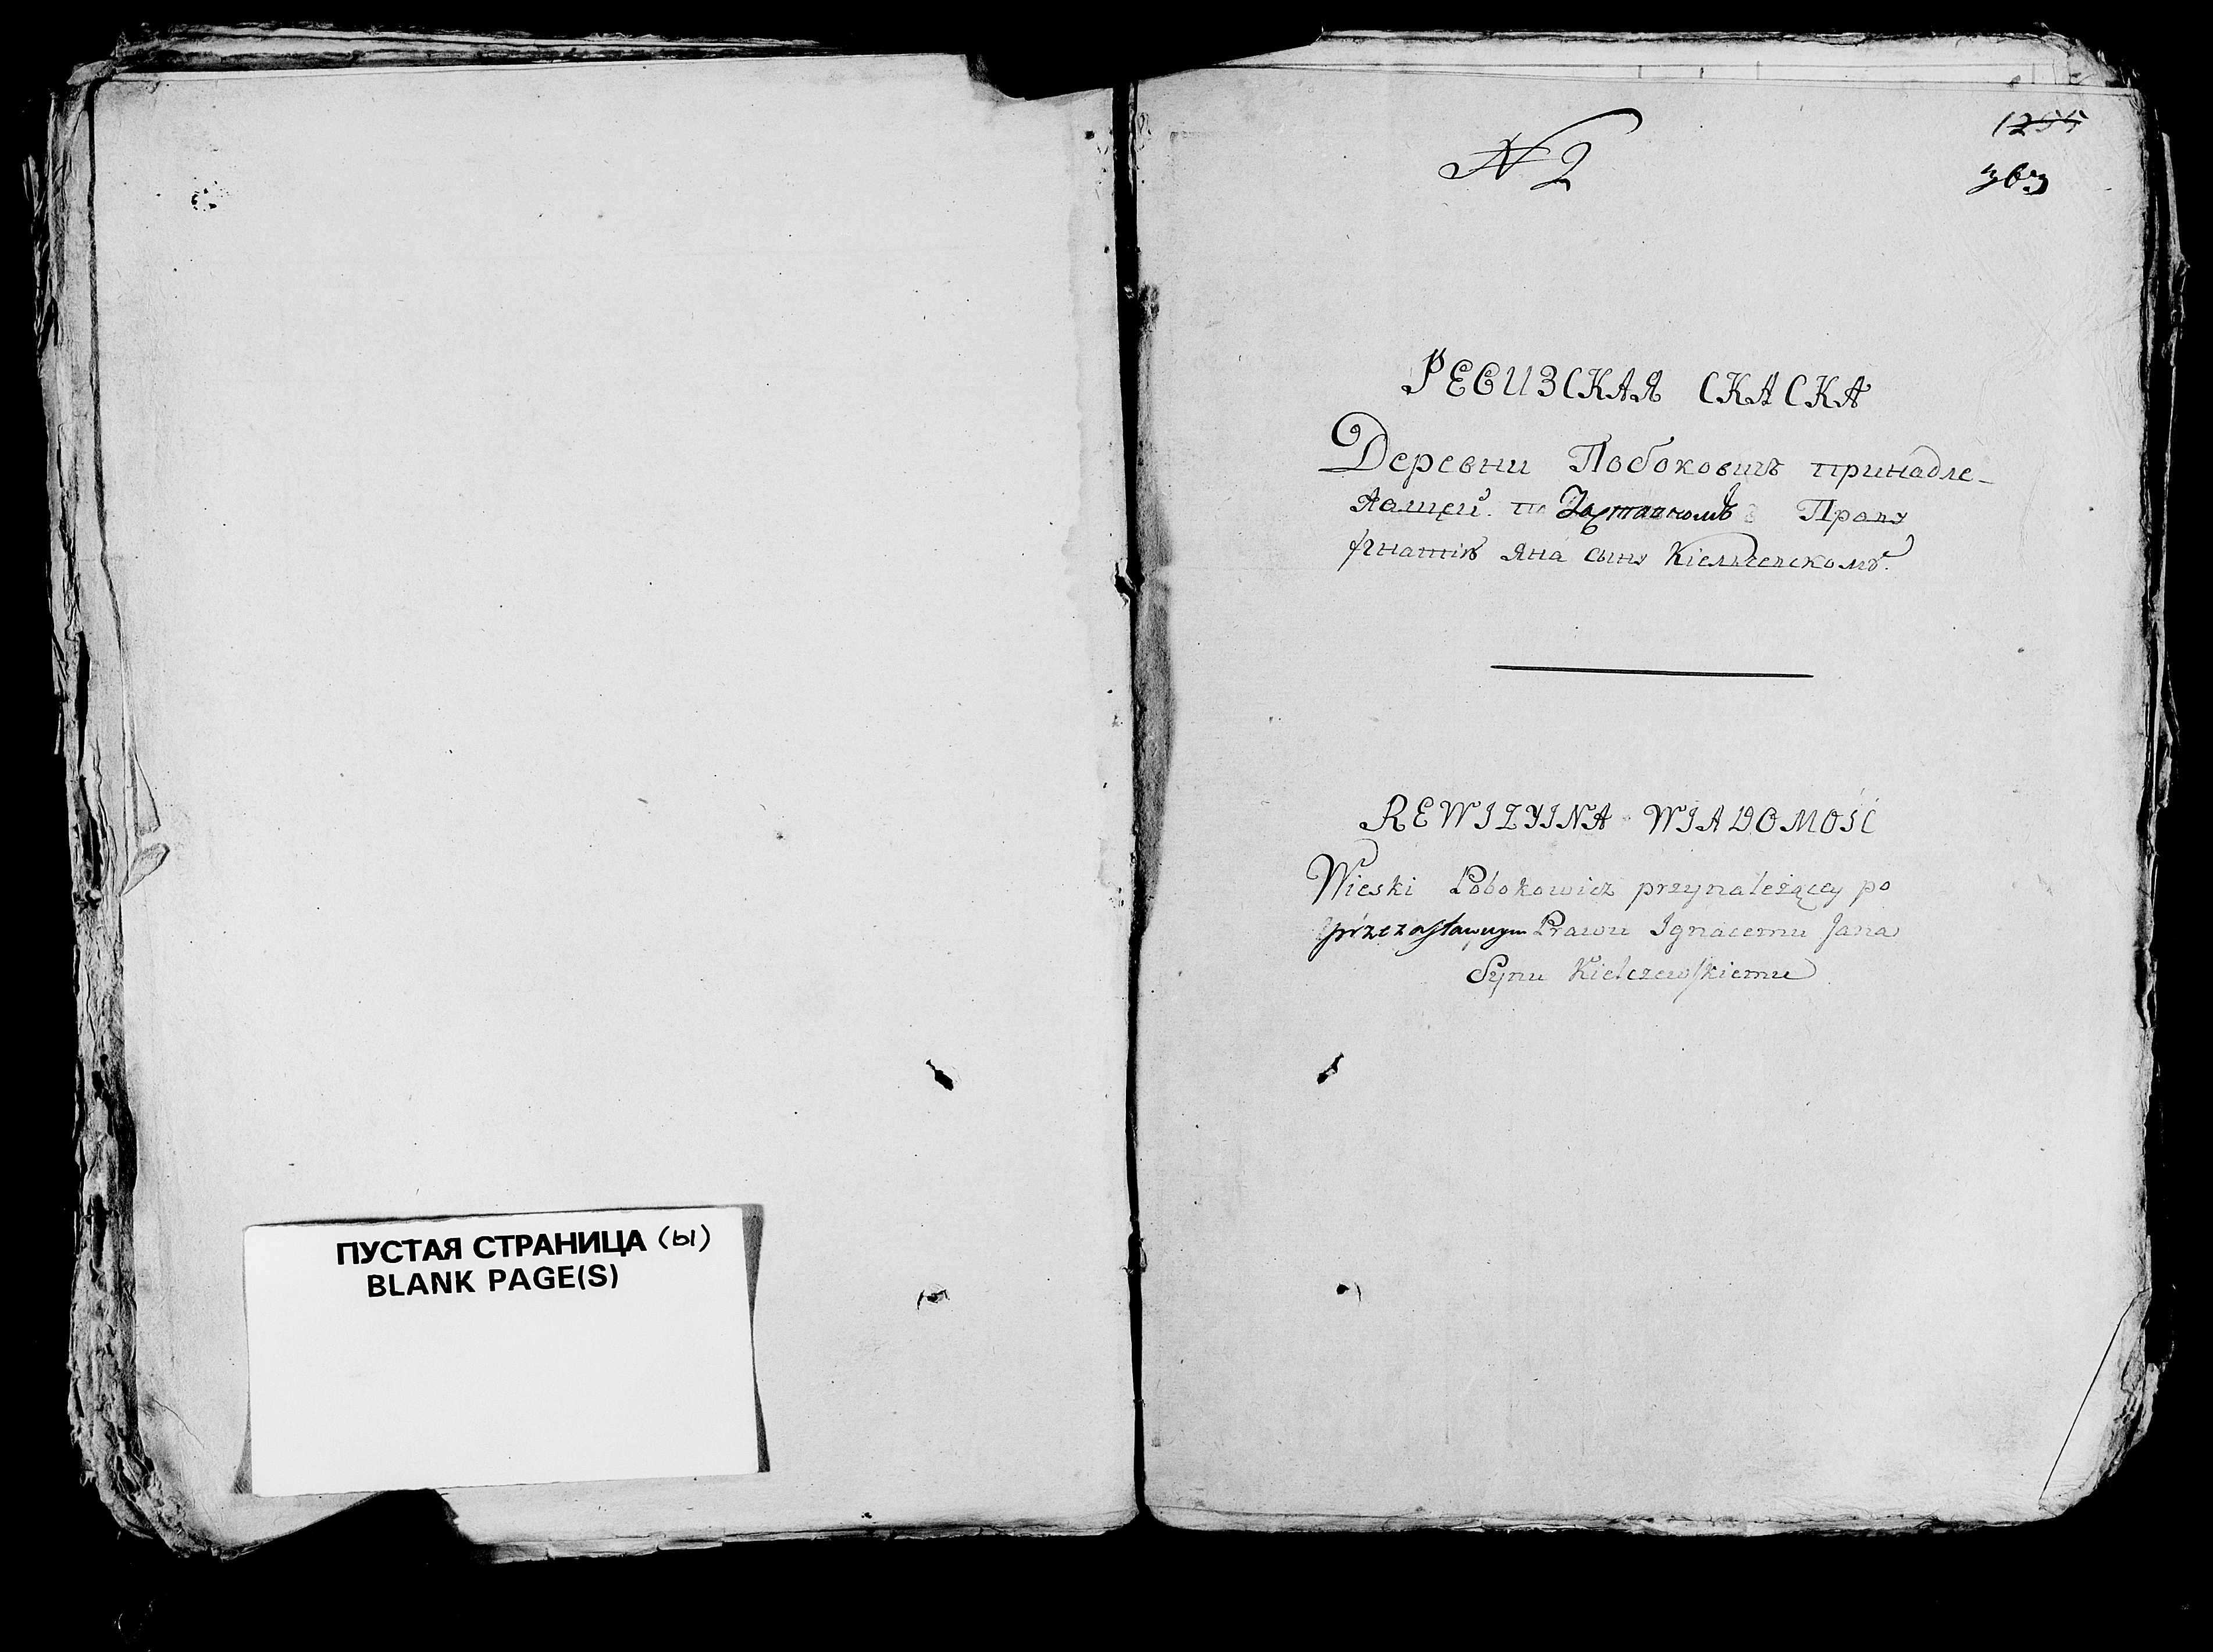 ПУСТАЯ СТРАНИЦА (ы)
BLANK PAGE(S)
N 2
1255
363
РЕВИЗСКАЯ СКАСКА
Деревни Побоковичъ принадле-
жащей по Заставномъ Праву
Игнатію Яна сыну Кіельчевскомъ.
REWIZYINA WIADOMOŚĆ
Wieski Pobokowicz przynależącey po
Zastawnym Prawu Ignacemu Jana
Synu Kielczewskiemu